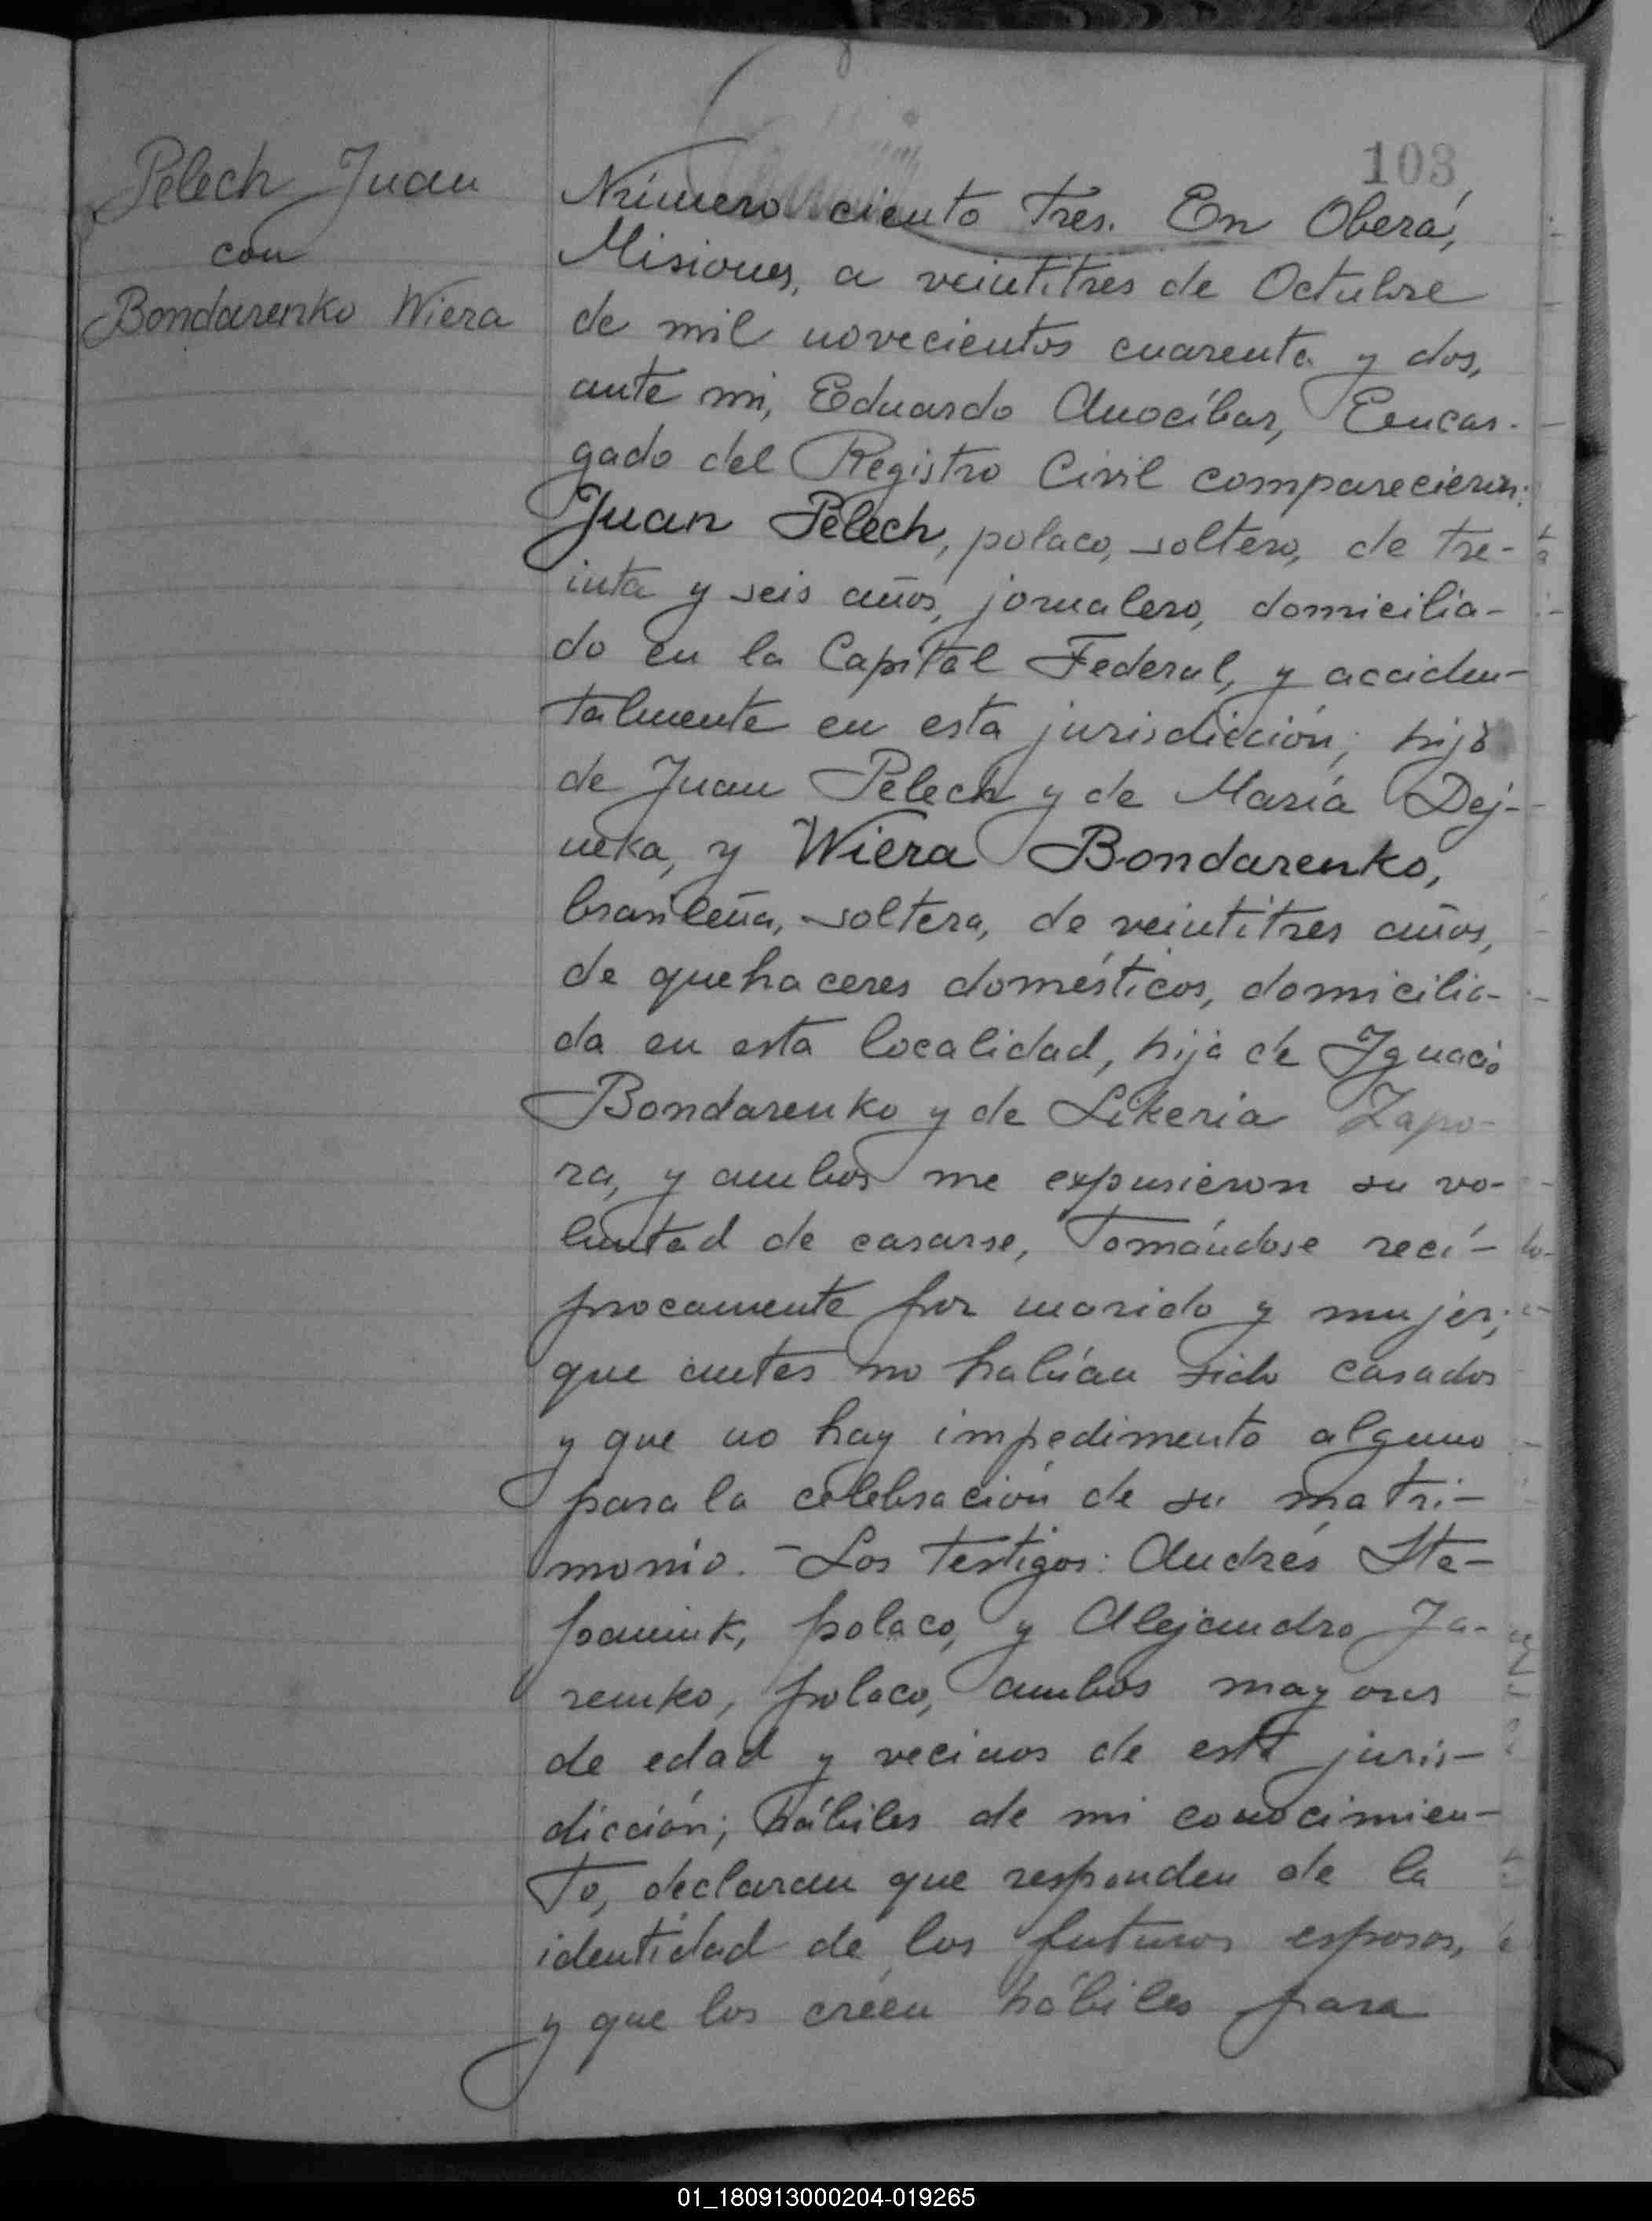 103
Pelech Juan
con
Bondarenko Wiera
Número ciento tres. En Oberá,
Misiones, a veintitres de Octubre
de mil novecientos cuarenta y dos,
ante mi, Eduardo Anocíbar, Encar-
gado del Registro Civil comparecieron:
Juan Pelech, polaco, soltero, de tre-
inta y seis años, jornalero, domicilia-
do en la Capital Federal, y acciden-
talmente en esta jurisdicción; hijo
de Juan Pelech y de María Dej-
neka, y Wiera Bondarenko,
brasileña, soltera, de veintitres años,
de quehaceres domésticos, domicilia-
da en esta localidad, hija de Ignacio
Bondarenko y de Likeria Zapo-
ra, y ambos me expusieron su vo-
luntad de casarse, tomándose recí-
procamente por marido y mujer;
que antes no habían sido casados
y que no hay impedimento alguno
para la celebración de su matri-
monio. - Los testigos: Andrés Ste-
paniuk, polaco, y Alejandro Ja-
remko, polaco, ambos mayores
de edad y vecinos de esta juris-
dicción; hábiles de mi conocimien-
to, declaran que responden de la
identidad de los futuros esposos,
y que los créen hábiles para
01_180913000204-019265